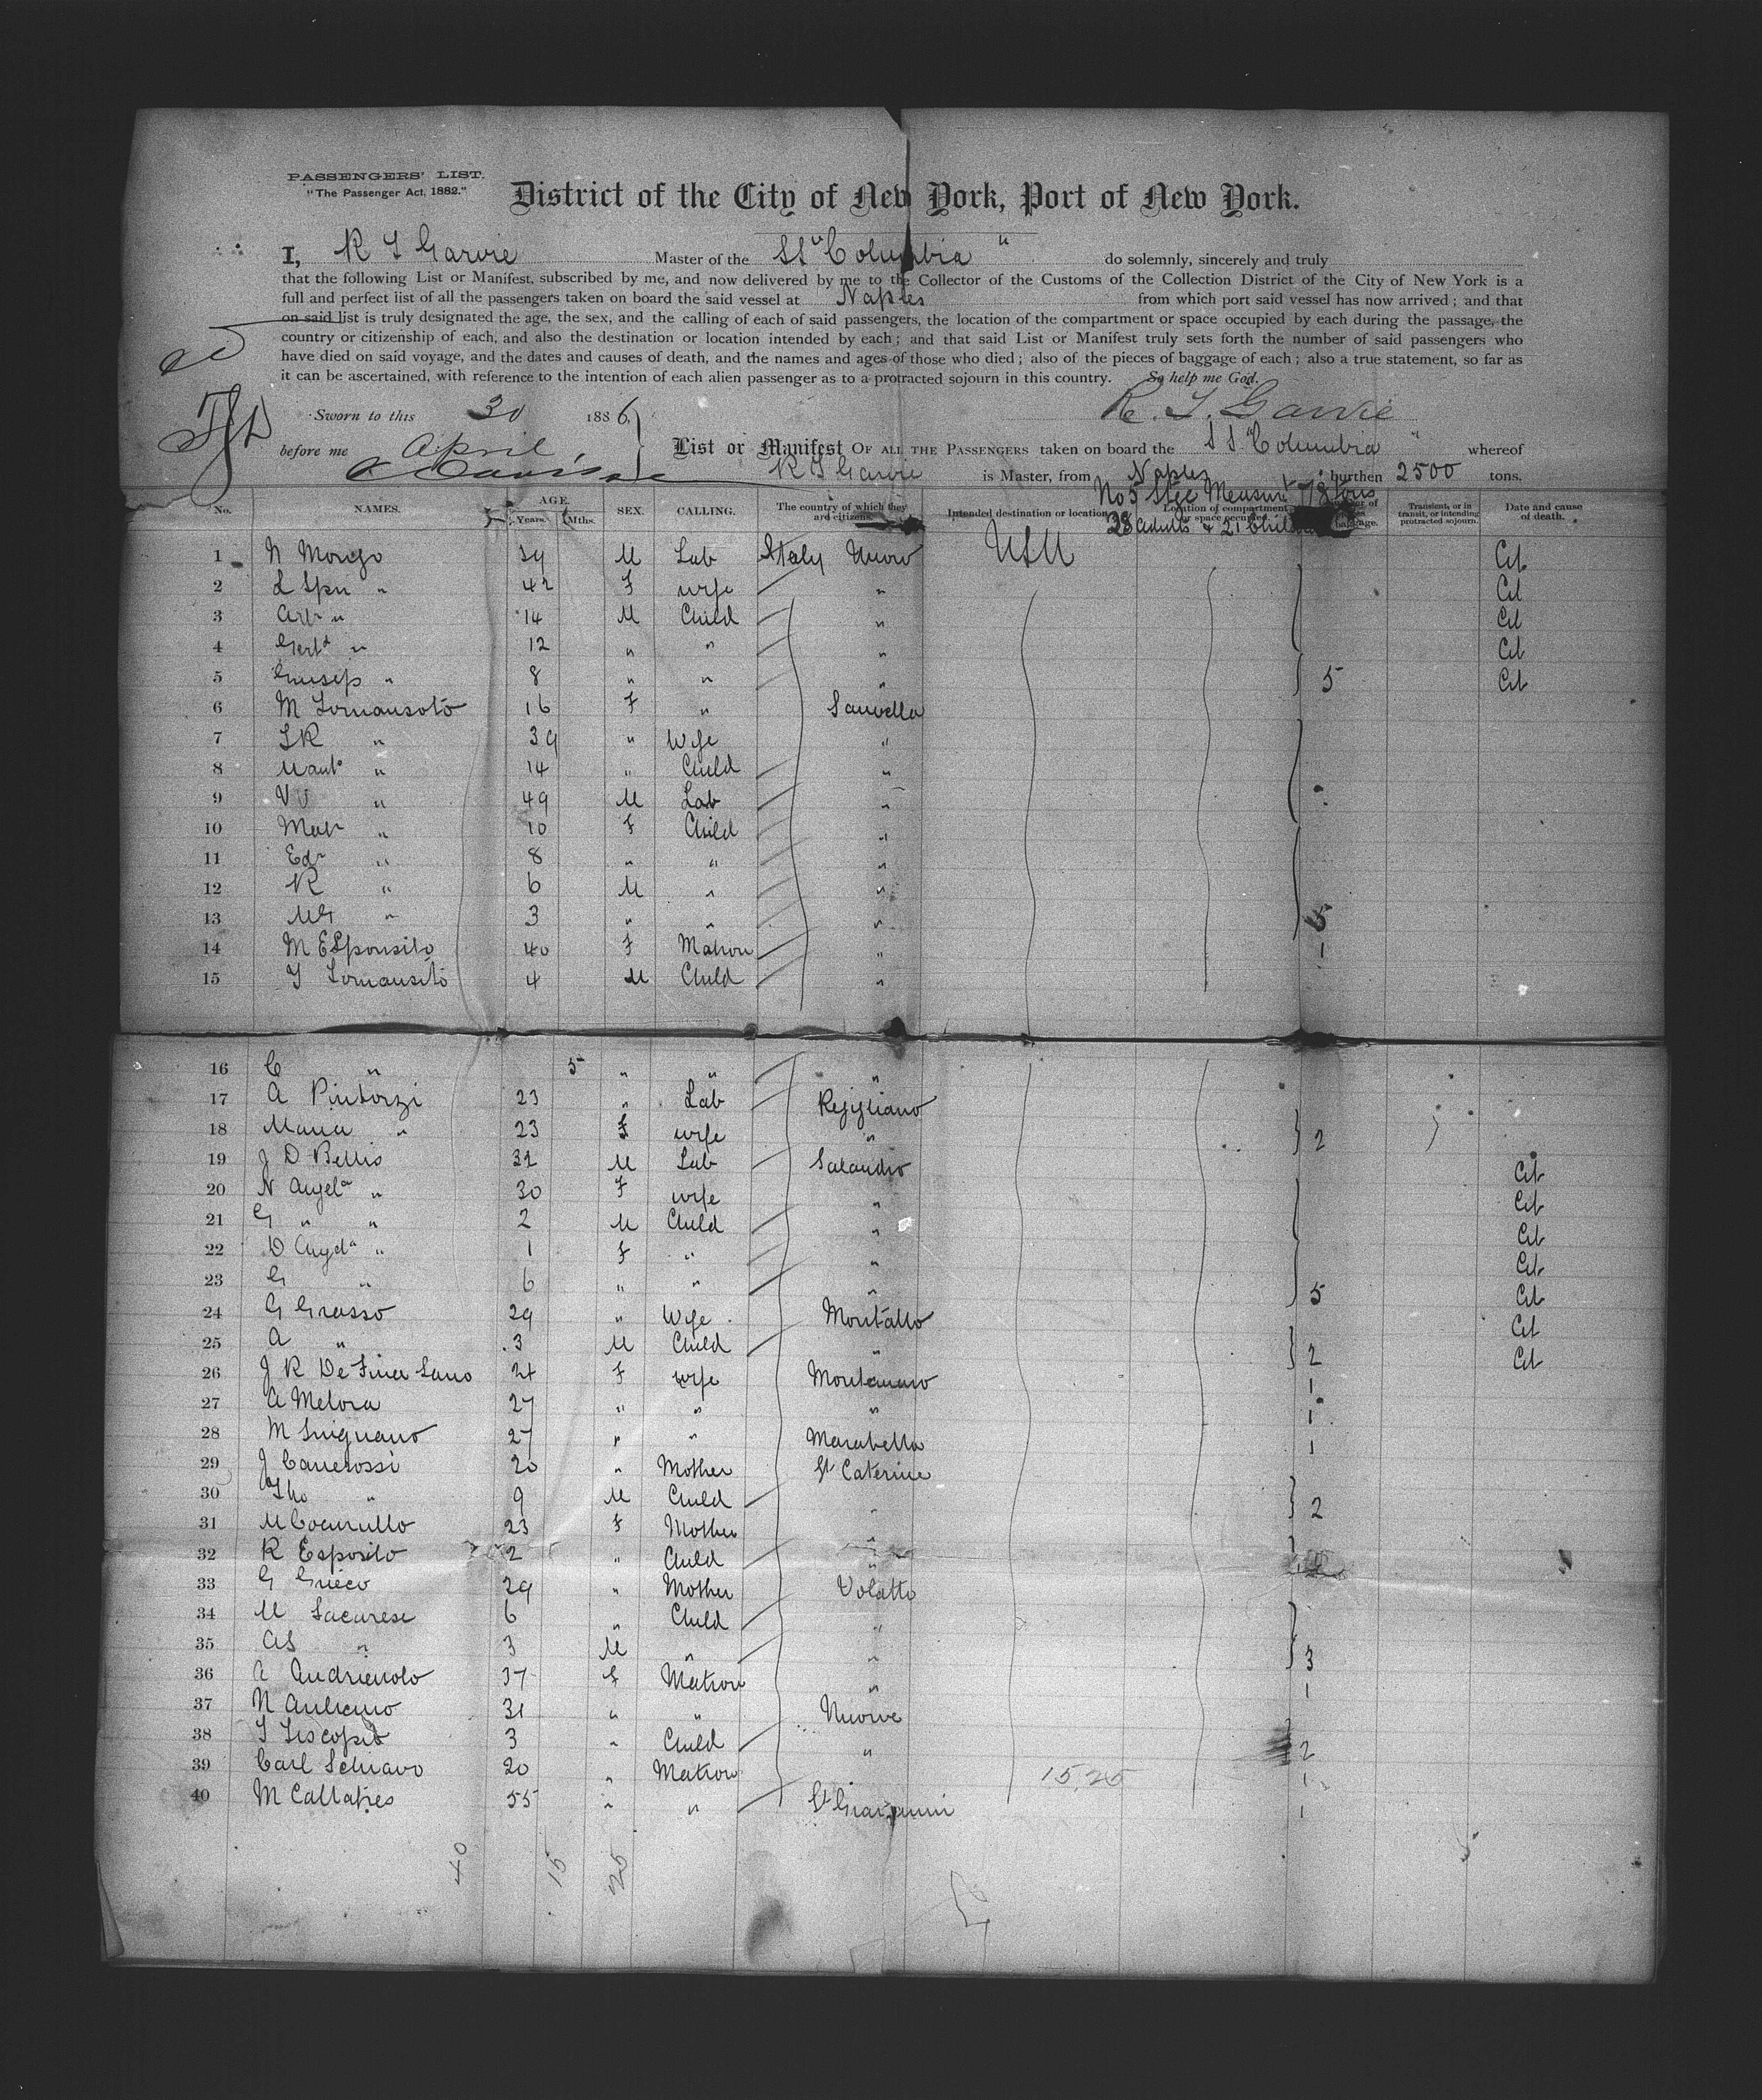 PASSENGERS' LIST.
"The Passenger Act, 1882."
District of the City of New York, Port of New York.
I, R S Garvie Master of the SS "Columbia" do solemnly, sincerely and truly
that the following List or Manifest, subscribed by me, and now delivered by me to the Collector of the Customs of the Collection District of the City of New York is a
full and perfect list of all the passengers taken on board the said vessel at Naples from which port said vessel has now arrived; and that
on said list is truly designated the age, the sex, and the calling of each of said passengers, the location of the compartment or space occupied by each during the passage, the
country or citizenship of each, and also the destination or location intended by each; and that said List or Manifest truly sets forth the number of said passengers who
have died on said voyage, and the dates and causes of death, and the names and ages of those who died; also of the pieces of baggage of each; also a true statement, so far as
it can be ascertained, with reference to the intention of each alien passenger as to a protracted sojourn in this country. So help me God.
Sworn to this 30 1886, R. S. Garvie
before me April List or Manifest OF ALL THE PASSENGERS taken on board the SS "Columbia" whereof
R S Garvie is Master, from Naples burthen 2500 tons.
No 5 Stge Measurt 78 tons
28 adults & 21 Child
No. NAMES. AGE. Years. Mths. SEX. CALLING. The country of which they are citizens. Intended destination or location Location of compartment or space occupied Number of pieces baggage. Transient, or in transit, or intending protracted sojourn. Date and cause of death.
1 N Mongo 39 M Lab Italy Nuovo USU Cit
2 " 42 F wife " Cit
3 " 14 M Child " Cit
4 " 12 " " " Cit
5 Giusep " 8 " " " 5 Cit
6 M Tomansoto 16 F "
7 SR " 39 " Wife "
8 " 14 " Child "
9 " 49 M Lab "
10 Mar " 10 F Child "
11 Edr " 8 " " "
12 R " 6 M " "
13 MG " 3 " " " 5
14 M ESponsito 40 F Matron " 1
15 T Tomansito 4 M Child "
16 C " 5 " " "
17 A Pintorzi 23 " Lab Regigliano
18 Maria " 23 F wife " 2
19 J D Bellis 32 M Lab Salandro Cit
20 N Angela " 30 F wife " Cit
21 G " " 2 M Child " Cit
22 D Angda " 1 F " " Cit
23 G " 6 " " " 5 Cit
24 G Grasso 29 " Wife Montallo Cit
25 A " 3 M Child " 2 Cit
26 J R De Fina Sano 24 F wife 1
27 A Melora 27 " " " 1
28 M 27 " " Marabella 1
29 J Canerossi 20 " Mother St Caterine
30 " 9 M Child " 2
31 M Cocurullo 23 F Mother "
32 R Esposito 2 " Child "
33 G Grieco 29 " Mother Volatto
34 M Sacarese 6 " Child "
35 AS " 3 M " " 3
36 A Andrienolo 37 F Matron " 1
37 N Auliemo 31 " " Nuove
38 3 " Child " 2
39 Carl Schiavo 20 " Matron 15.25 1
40 M Callatres 55 " " St Giavanni 1
40 15 25